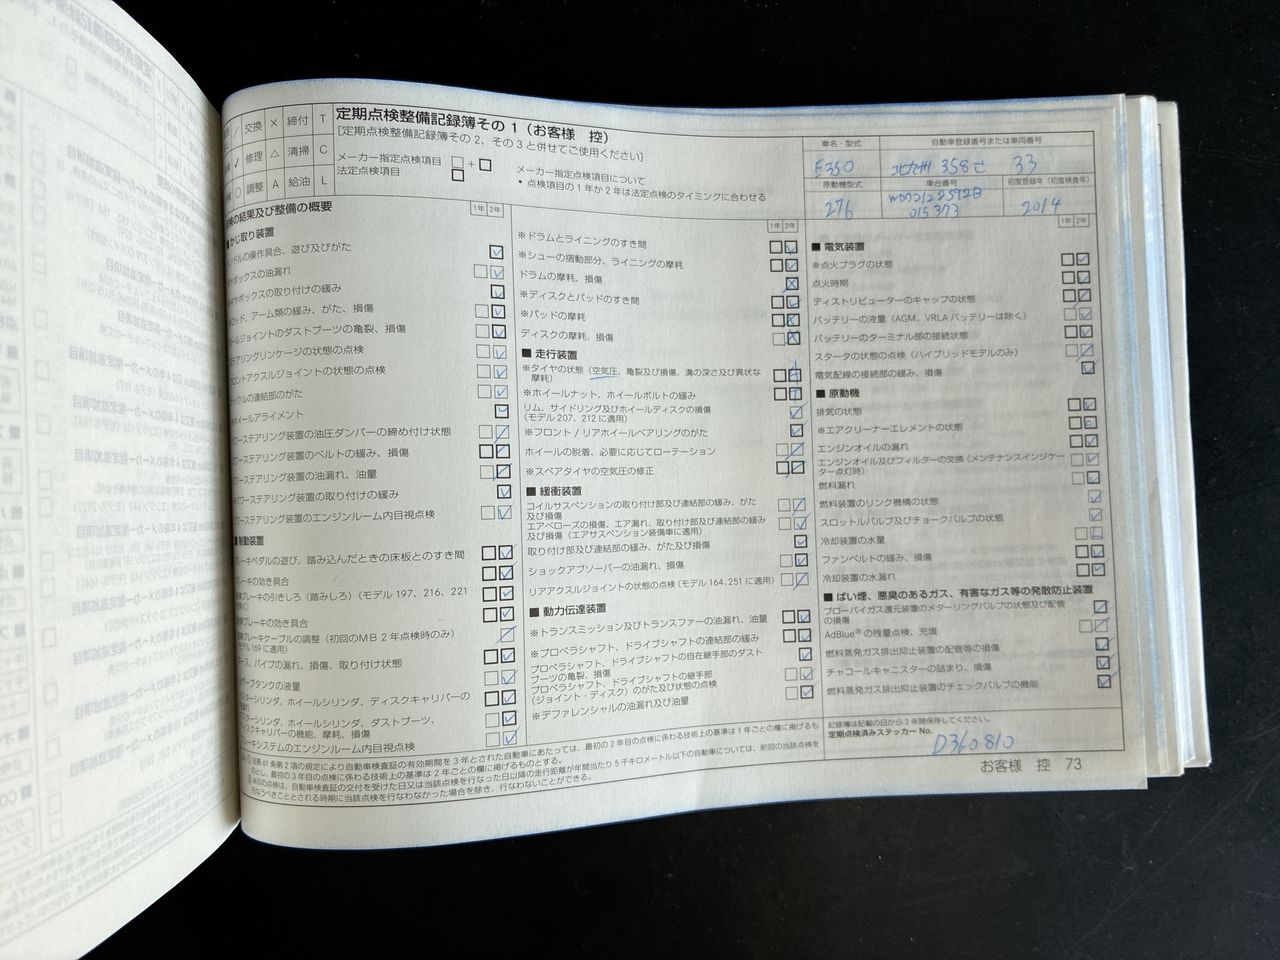 定期点検整備記録簿その1（お客様　控）
［定期点検整備記録簿その2、その3と併せてご使用ください］
交換 × 締付 T
修理 △ 清掃 C
調整 A 給油 L
メーカー指定点検項目 □ + □
法定点検項目 □
メーカー指定点検項目について
• 点検項目の1年か2年は法定点検のタイミングに合わせる
車名・型式
E350
自動車登録番号または車両番号
北九州 358 さ 33
原動機型式
276
車台番号
015373
初度登録年（初度検査年）
2014
点検の結果及び整備の概要
1年 2年
■かじ取り装置
ハンドルの操作具合、遊び及びがた
ギヤボックスの油漏れ
ギヤボックスの取り付けの緩み
ロッド、アーム類の緩み、がた、損傷
ボールジョイントのダストブーツの亀裂、損傷
ステアリングリンケージの状態の点検
フロントアクスルジョイントの状態の点検
ナックルの連結部のがた
ホイールアライメント
パワーステアリング装置の油圧ダンパーの締め付け状態
パワーステアリング装置のベルトの緩み、損傷
パワーステアリング装置の油漏れ、油量
パワーステアリング装置の取り付けの緩み
パワーステアリング装置のエンジンルーム内目視点検
■制動装置
ブレーキペダルの遊び、踏み込んだときの床板とのすき間
ブレーキの効き具合
ブレーキの引きしろ（踏みしろ）（モデル 197、216、221
ブレーキの効き具合
ブレーキケーブルの調整（初回のMB 2年点検時のみ）
モデル169に適用）
ホース、パイプの漏れ、損傷、取り付け状態
リザーブタンクの液量
マスターシリンダ、ホイールシリンダ、ディスクキャリパーの
マスターシリンダ、ホイールシリンダ、ダストブーツ、
ディスクキャリパーの機能、摩耗、損傷
ブレーキシステムのエンジンルーム内目視点検
1年 2年
※ドラムとライニングのすき間
※シューの摺動部分、ライニングの摩耗
ドラムの摩耗、損傷
※ディスクとパッドのすき間
※パッドの摩耗
ディスクの摩耗、損傷
■ 走行装置
※タイヤの状態（空気圧、亀裂及び損傷、溝の深さ及び異状な
摩耗）
※ホイールナット、ホイールボルトの緩み
リム、サイドリング及びホイールディスクの損傷
（モデル 207、212 に適用）
※フロント / リアホイールベアリングのがた
ホイールの脱着、必要に応じてローテーション
※スペアタイヤの空気圧の修正
■ 緩衝装置
コイルサスペンションの取り付け部及び連結部の緩み、がた
及び損傷
エアベローズの損傷、エア漏れ、取り付け部及び連結部の緩み
及び損傷（エアサスペンション装備車に適用）
取り付け部及び連結部の緩み、がた及び損傷
ショックアブソーバーの油漏れ、損傷
リアアクスルジョイントの状態の点検（モデル 164, 251 に適用）
■ 動力伝達装置
※トランスミッション及びトランスファーの油漏れ、油量
※プロペラシャフト、ドライブシャフトの連結部の緩み
プロペラシャフト、ドライブシャフトの自在継手部のダスト
ブーツの亀裂、損傷
プロペラシャフト、ドライブシャフトの継手部
（ジョイント・ディスク）のがた及び状態の点検
※デファレンシャルの油漏れ及び油量
1年 2年
■ 電気装置
※点火プラグの状態
点火時期
ディストリビューターのキャップの状態
バッテリーの液量（AGM、VRLA バッテリーは除く）
バッテリーのターミナル部の接続状態
スタータの状態の点検（ハイブリッドモデルのみ）
電気配線の接続部の緩み、損傷
■ 原動機
排気の状態
※エアクリーナーエレメントの状態
エンジンオイルの漏れ
エンジンオイル及びフィルターの交換（メンテナンスインジケー
ター点灯時）
燃料漏れ
燃料装置のリンク機構の状態
スロットルバルブ及びチョークバルブの状態
冷却装置の水量
ファンベルトの緩み、損傷
冷却装置の水漏れ
■ ばい煙、悪臭のあるガス、有害なガス等の発散防止装置
ブローバイガス還元装置のメターリングバルブの状態及び配管
の損傷
AdBlue® の残量点検、充填
燃料蒸発ガス排出抑止装置の配管等の損傷
チャコールキャニスターの詰まり、損傷
燃料蒸発ガス排出抑止装置のチェックバルブの機能
記録簿は記載の日から2年間保存してください。
定期点検済みステッカー No.
D360810
法第 61 条第 2 項の規定により自動車検査証の有効期間を 3 年とされた自動車にあたっては、最初の 2 年目の点検に係わる技術上の基準は 1 年ごとの欄に掲げるも
のとし、最初の 3 年目の点検に係わる技術上の基準は 2 年ごとの欄に掲げるものとする。
本日の点検は、自動車検査証の交付を受けた日又は当該点検を行なった日以降の走行距離が年間当たり 5 千キロメートル以下の自動車については、前回の当該点検を
行なうべきこととされる時期に当該点検を行なわなかった場合を除き、行なわないことができる。
お客様　控　73